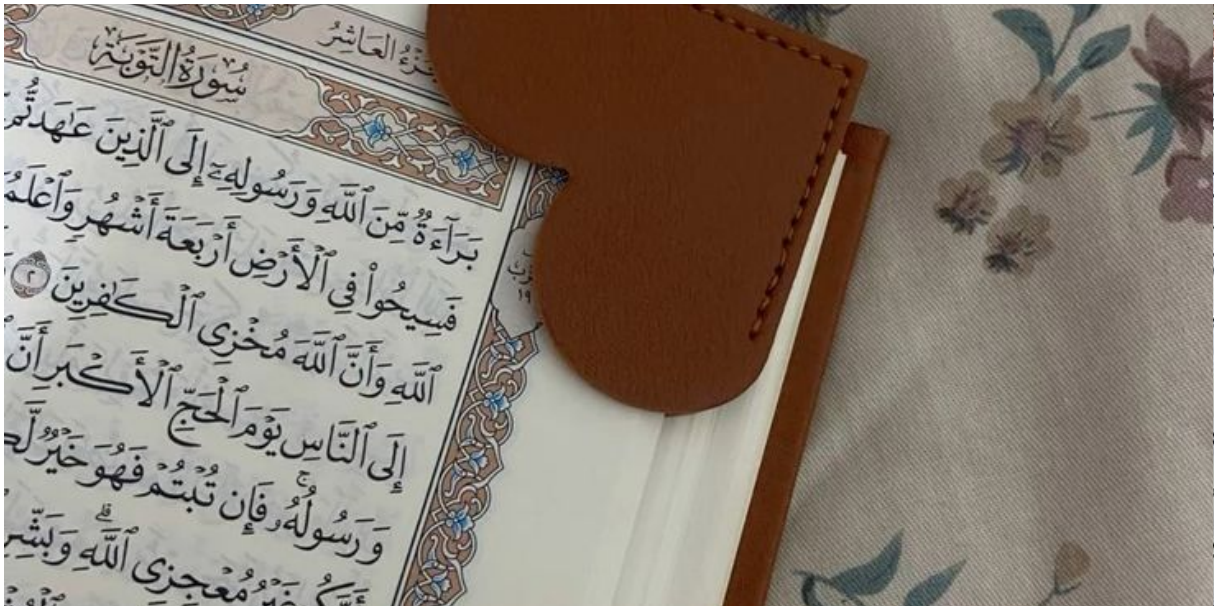 العَاشِرُ
سُورَةُ التَّوْبَةِ
بَرَآءَةٌ مِّنَ ٱللَّهِ وَرَسُولِهِۦٓ إِلَى ٱلَّذِينَ عَٰهَدتُّم
فَسِيحُوا۟ فِى ٱلْأَرْضِ أَرْبَعَةَ أَشْهُرٍ وَٱعْلَمُ
ٱللَّهِ وَأَنَّ ٱللَّهَ مُخْزِى ٱلْكَٰفِرِينَ ٢
إِلَى ٱلنَّاسِ يَوْمَ ٱلْحَجِّ ٱلْأَكْبَرِ أَنَّ
وَرَسُولُهُۥۚ فَإِن تُبْتُمْ فَهُوَ خَيْرٌ
غَيْرُ مُعْجِزِى ٱللَّهِۗ وَبَشِّرِ
١٩